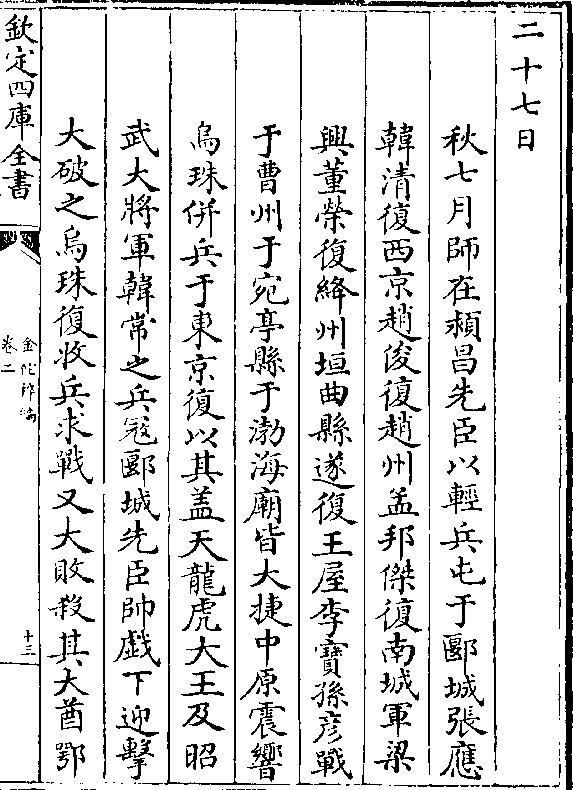 二十七日
秋七月師在潁昌先臣以輕兵屯于郾城張應
韓清復西京趙俊復趙州孟邦傑復南城軍梁
興董榮復絳州垣曲縣遂復王屋李寶孫彦戰
于曹州于宛亭縣于渤海廟皆大捷中原震響
烏珠併兵于東京復以其盖天龍虎大王及昭
武大將軍韓常之兵冦郾城先臣帥戲下迎擊
大破之烏珠復收兵求戰又大敗殺其大酋鄂
欽定四庫全書
金佗稡編
卷二
十三